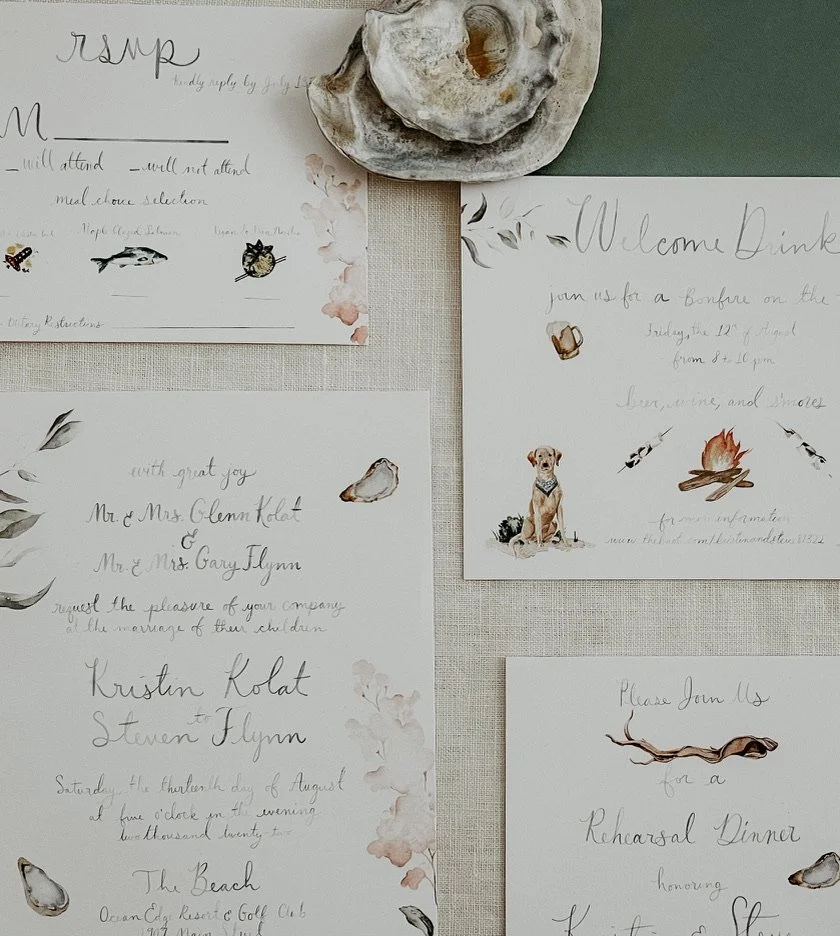 rsvp
kindly reply by July
M
will attend will not attend
meal choice selection
Maple Glazed Salmon
Dietary Restrictions
Welcome Drink
join us for a Bonfire on the
Friday, the 12th of August
from 8 to 10 pm
beer, wine, and s'mores
for more information
www.theknot.com/kristinandsteve81322
with great joy
Mr. & Mrs. Glenn Kolat
&
Mr. & Mrs. Gary Flynn
request the pleasure of your company
at the marriage of their children
Kristin Kolat
to
Steven Flynn
Saturday, the thirteenth day of August
at five o'clock in the evening
two thousand twenty-two
The Beach
Ocean Edge Resort & Golf Club
Main Street
Please Join Us
for a
Rehearsal Dinner
honoring